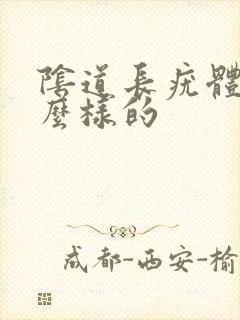 陰道長疣體
麼樣的
成都-西安-榆